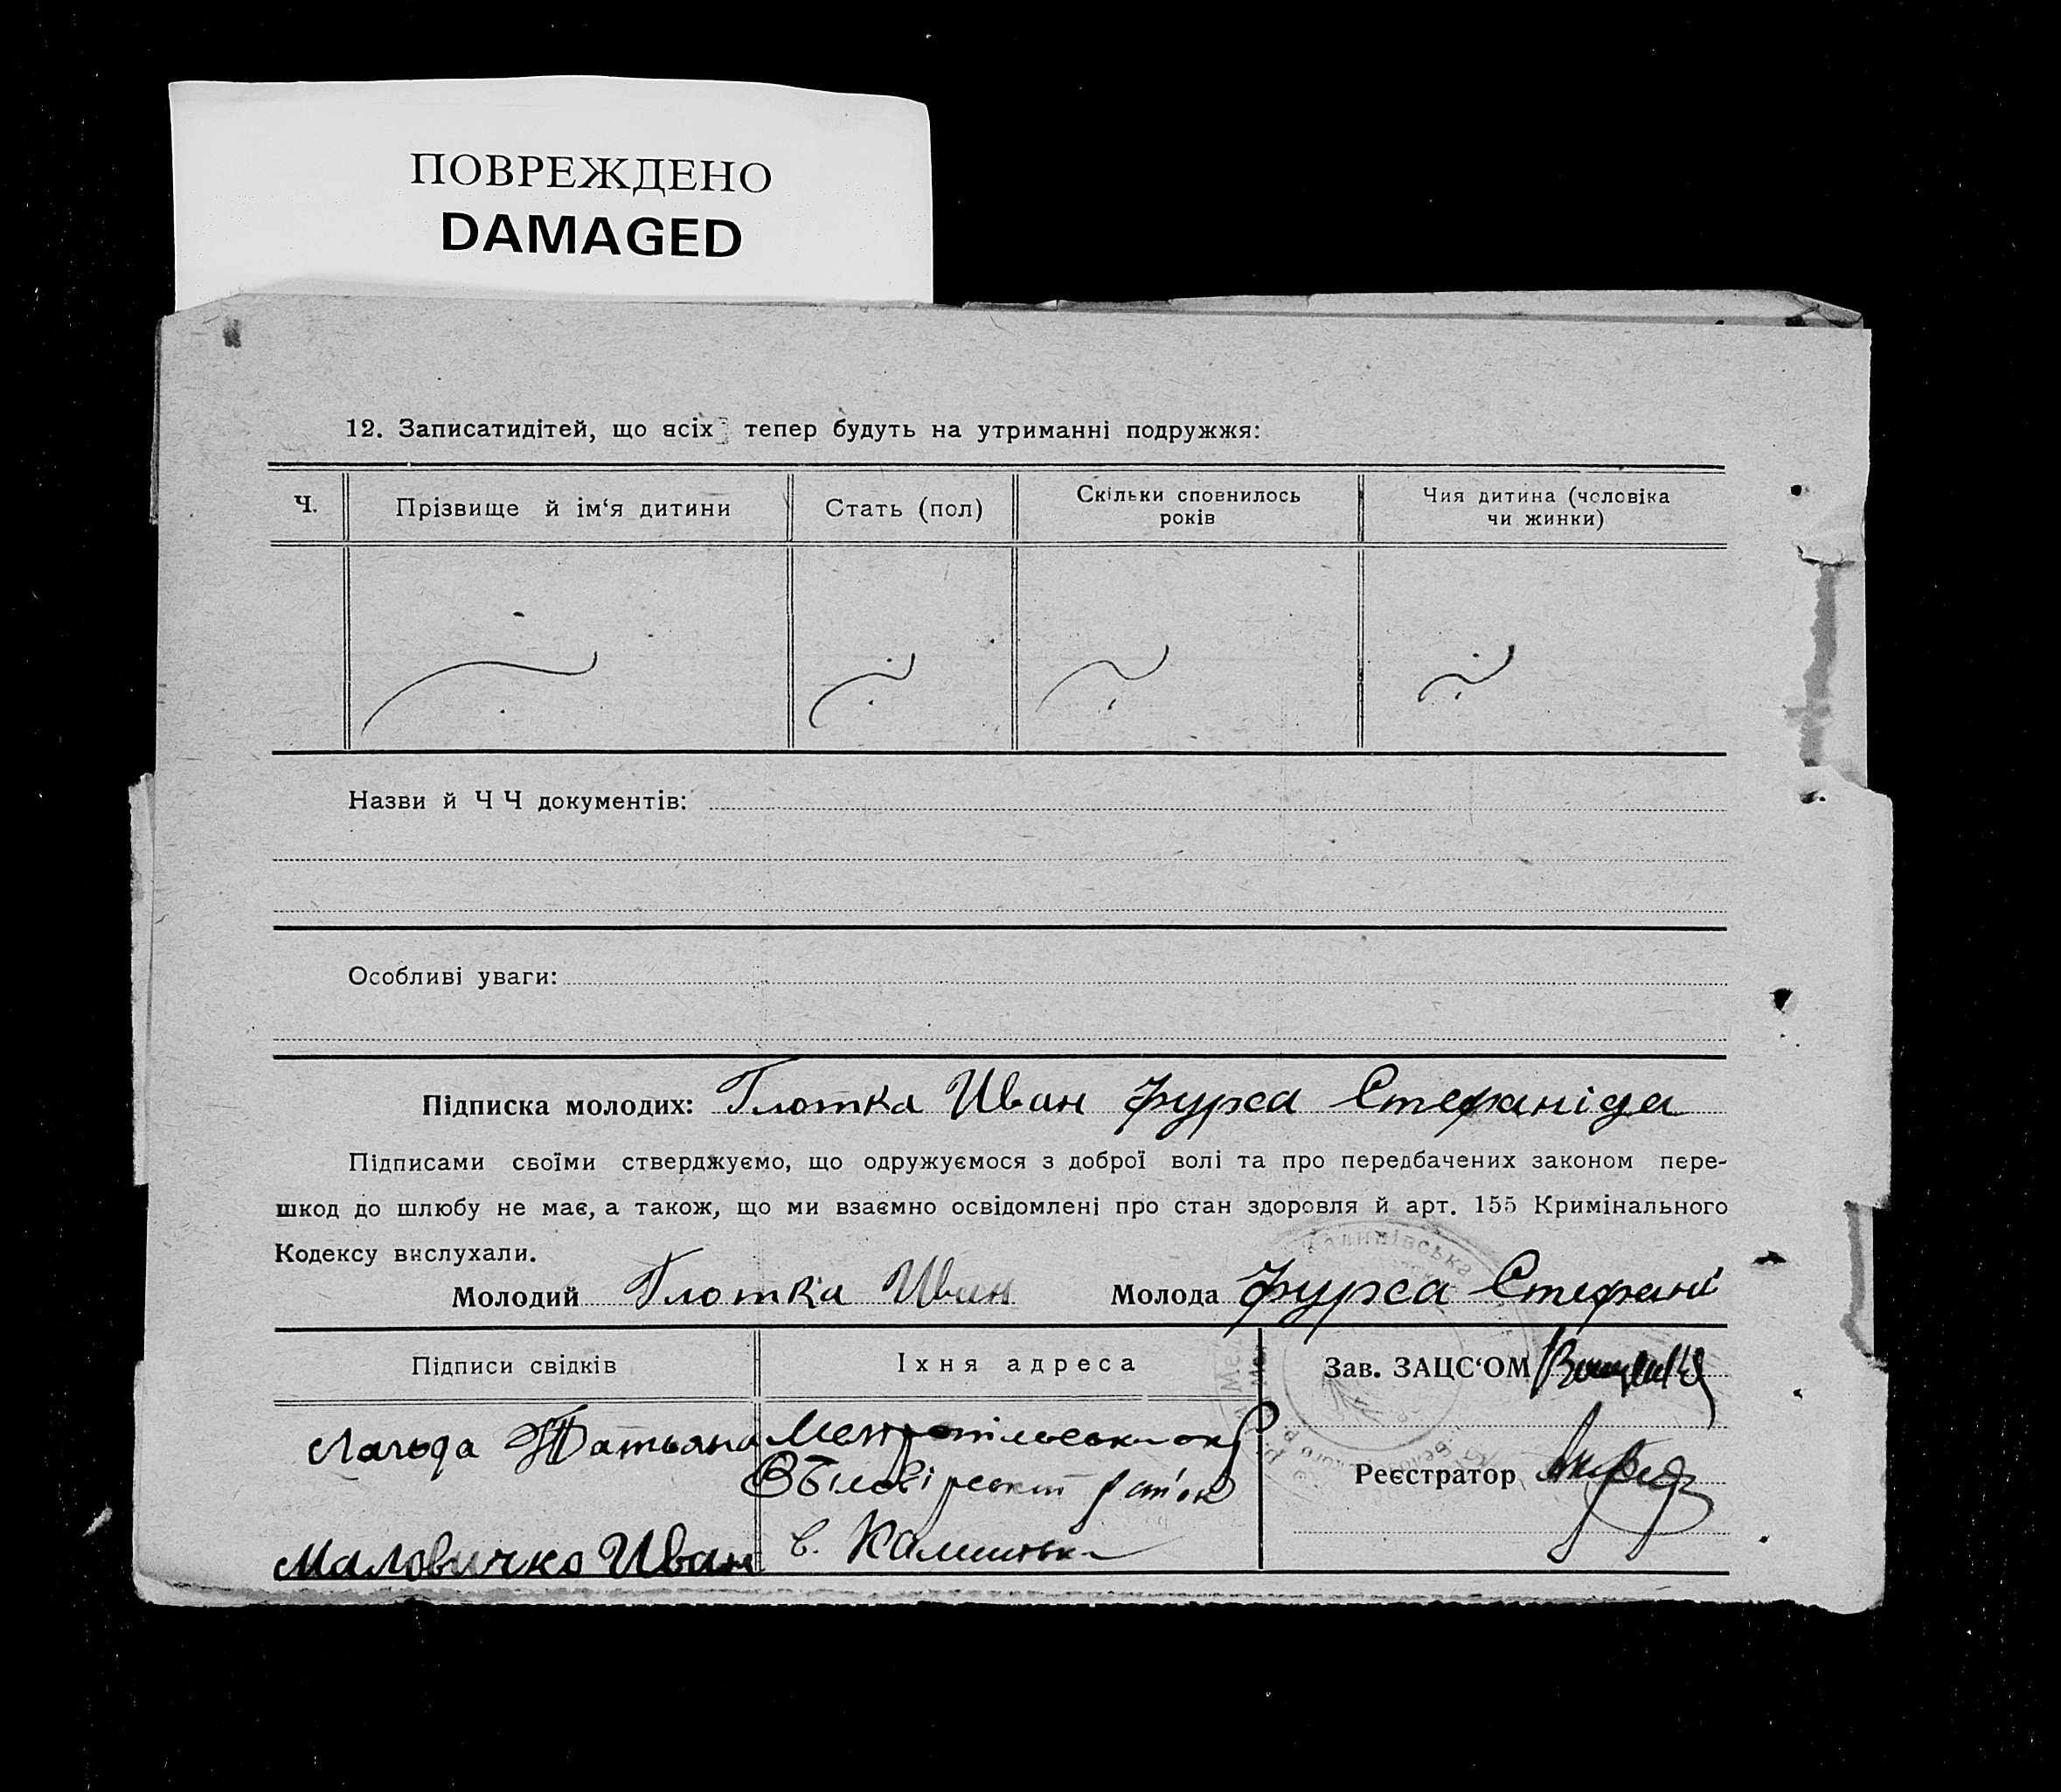 ПОВРЕЖДЕНО
DAMAGED
12. Записатидітей, що всіх тепер будуть на утриманні подружжя:
Ч. Прізвище й ім‘я дитини Стать (пол) Скільки сповнилось років Чия дитина (чоловіка чи жинки)
Назви й Ч Ч документів:
Особливі уваги:
Підписка молодих: Глотка Иван Фурса Стефаніда
Підписами своїми стверджуємо, що одружуємося з доброї волі та про передбачених законом пере-
шкод до шлюбу не має, а також, що ми взаємно освідомлені про стан здоровля й арт. 155 Кримінального
Кодексу вислухали.
Молодий Глотка Иван Молода Фурса Стефані
Підписи свідків Їхня адреса Зав. ЗАЦС‘ОМ
Татьяна
Реєстратор
Маловичко Иван с.